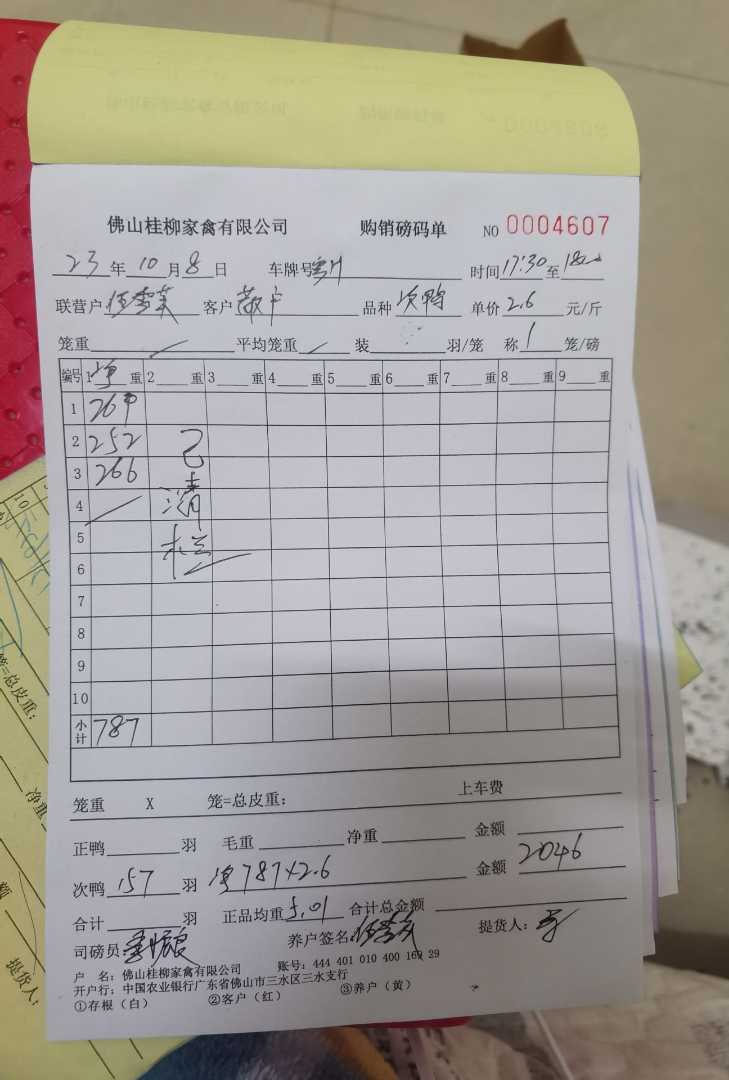 佛山桂柳家禽有限公司 购销磅码单 NO 0004607
23年10月8日 车牌号 时间17:30至
联营户 客户散户 品种次鸭 单价2.6元/斤
笼重 平均笼重 装 羽/笼 称1笼/磅
编号 1净重 2 重 3 重 4 重 5 重 6 重 7 重 8 重 9 重
1 269
2 252 已
3 266
4 清
5
6 栏
7
8
9
10
小计 787
笼重 X 笼=总皮重: 上车费
正鸭 羽 毛重 净重 金额
次鸭157羽 净787×2.6 金额2046
合计 羽 正品均重5.01 合计总金额
司磅员: 养户签名: 提货人:
户 名:佛山桂柳家禽有限公司 账号:444 401 010 400 169 29
开户行:中国农业银行广东省佛山市三水区三水支行
①存根(白) ②客户(红) ③养户(黄)
笼=总皮重:
净重
额
提货人: